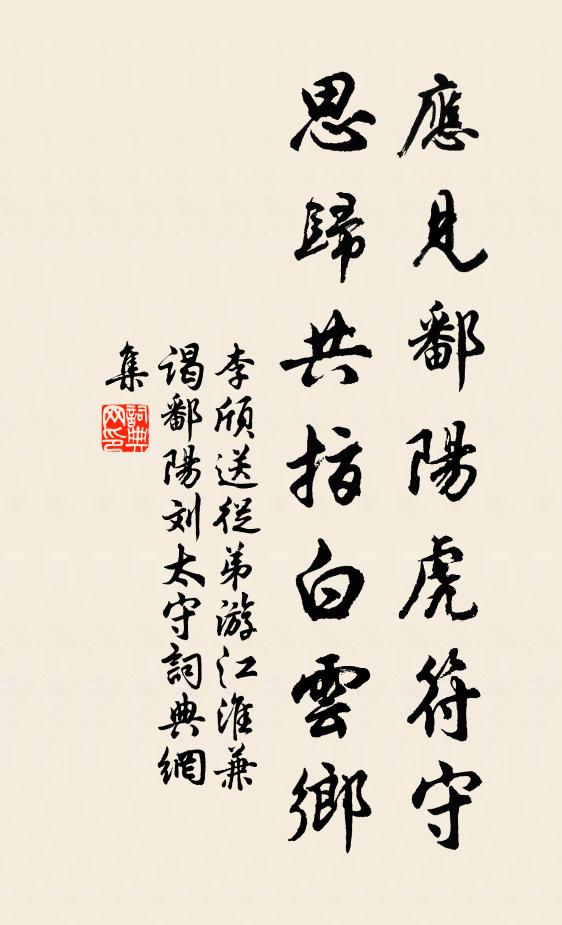 應見鄱陽虎符守
思歸共指白雲鄉
李頎送從弟游江淮兼
謁鄱陽刘太守詞典網
集
詞典
网印